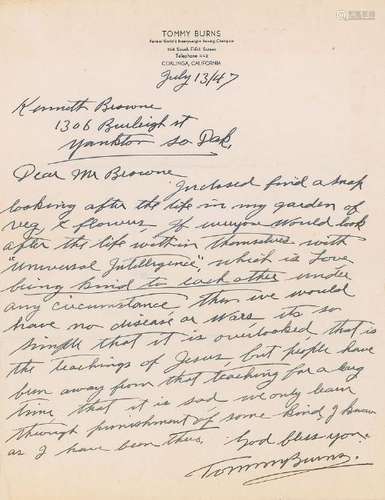 TOMMY BURNS
Former World's Heavyweight Boxing Champion
South Fifth Street
Telephone
COALINGA, CALIFORNIA
July 13/47
Kenneth Browne
1306 Burleigh st
Yankton So Dak,
Dear Mr Browne
Inclosed find a snap
looking after the life in my garden of
veg & flowers. If everyone would look
after the life within themselves with
"Universal Intelligence", which is Love
being kind to each other under
any circumstance, then we would
have no disease or wars its so
simple that it is overlooked that is
the teachings of Jesus, but people have
been away from that teaching for a long
time that it is sad we only learn
through punishment of some kind, I know
as I have been thru. God bless you.
Tommy Burns.